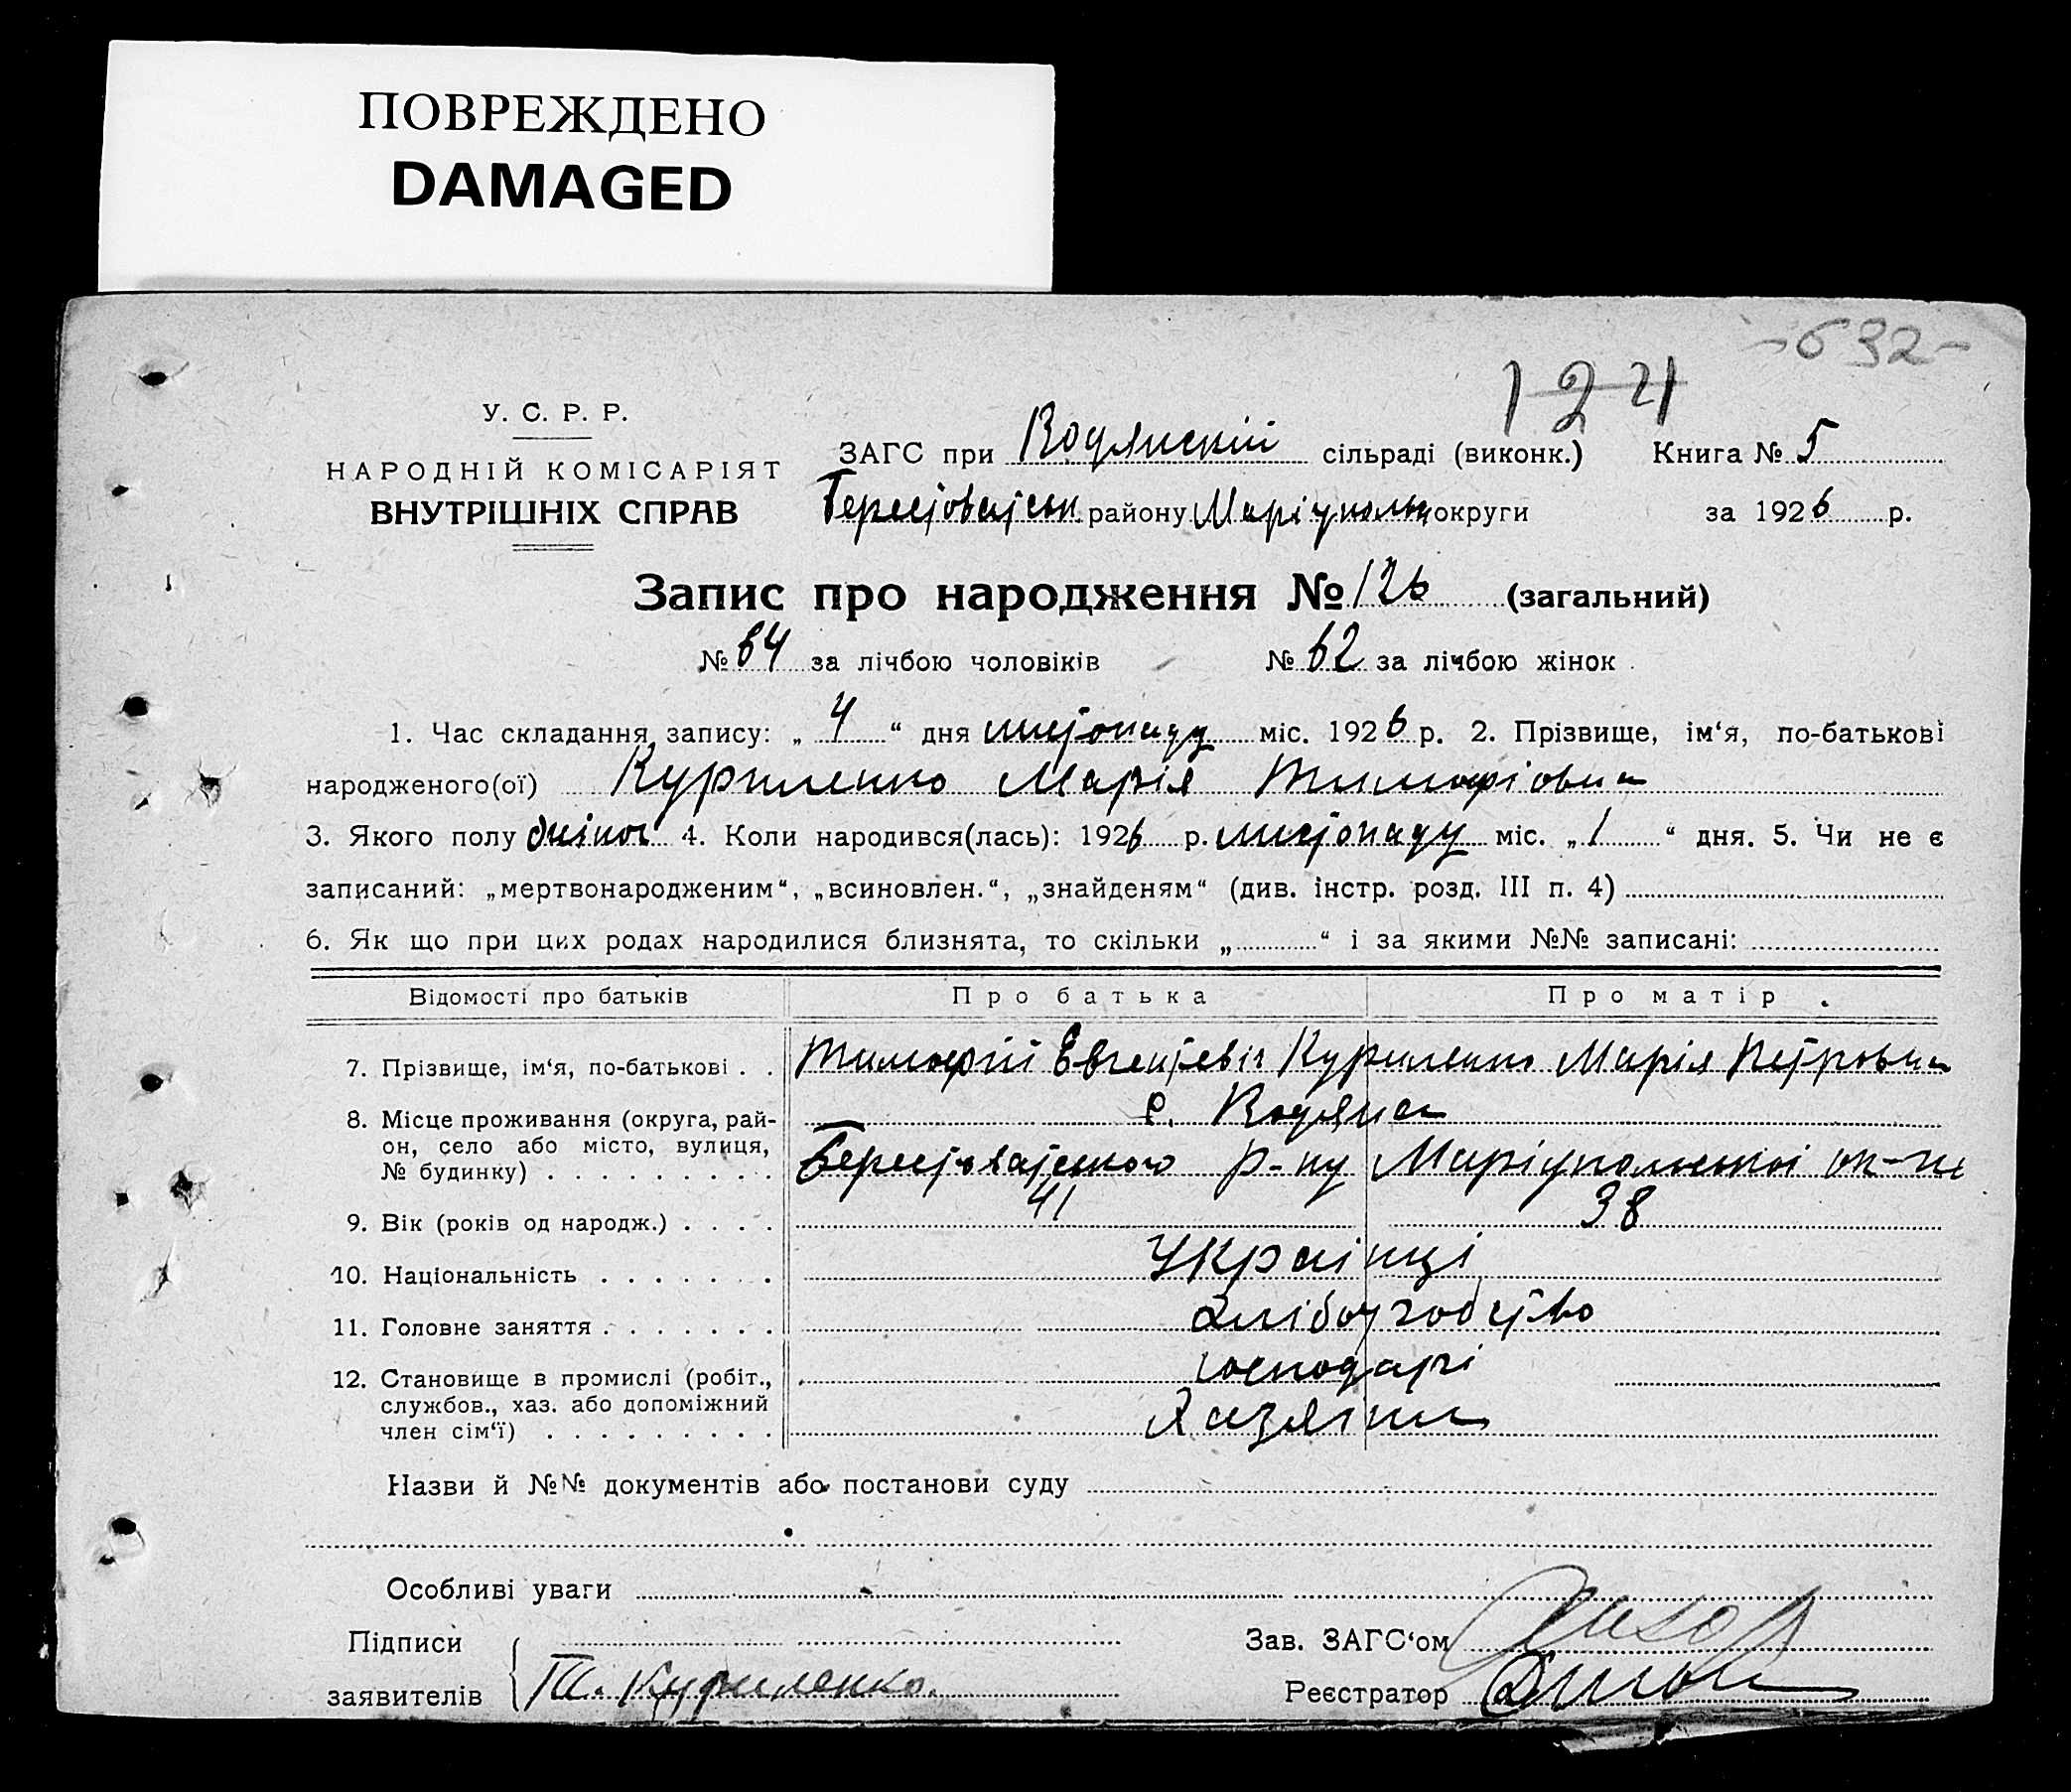 ПОВРЕЖДЕНО
DAMAGED
-632-
124
У. С. Р. Р.
НАРОДНІЙ КОМІСАРІЯТ
ВНУТРІШНІХ СПРАВ
ЗАГС при Водянскій сільраді (виконк.) Книга № 5
району Маріупольськ округи за 1926 р.
Запис про народження № 126 (загальний)
№ 64 за лічбою чоловіків № 62 за лічбою жінок
1. Час складання запису: „ 4 “ дня листопаду міс. 1926 р. 2. Прізвище, ім‘я, по-батькові
народженого(ої) Куриленко Марія Тимофіовна
3. Якого полу жіноч 4. Коли народився(лась): 1926 р. листопаду міс. „1“ дня. 5. Чи не є
записаний: „мертвонародженим“, „всиновлен.“, „знайденям“ (див. інстр. розд. III п. 4)
6. Як що при цих родах народилися близнята, то скільки „ “ і за якими №№ записані:
Відомості про батьків Про батька Про матір
7. Прізвище, ім‘я, по-батькові . . Тимофій Куриленко Марія Петровна
8. Місце проживання (округа, рай- с. Водяна
он, село або місто, вулиця,
№ будинку) . . . . . . . . . р-ну Маріупольської ок-ги
9. Вік (років од народж.) . . . . 41 38
10. Національність . . . . . . . Украінці
11. Головне заняття . . . . . . . хліборобство
12. Становище в промислі (робіт., господарі
службов., хаз. або допоміжний Хазяіни
член сім‘ї) . . . . . . . . .
Назви й №№ документів або постанови суду
Особливі уваги
Підписи Зав. ЗАГС‘ом
заявителів Т. Куриленко. Реєстратор